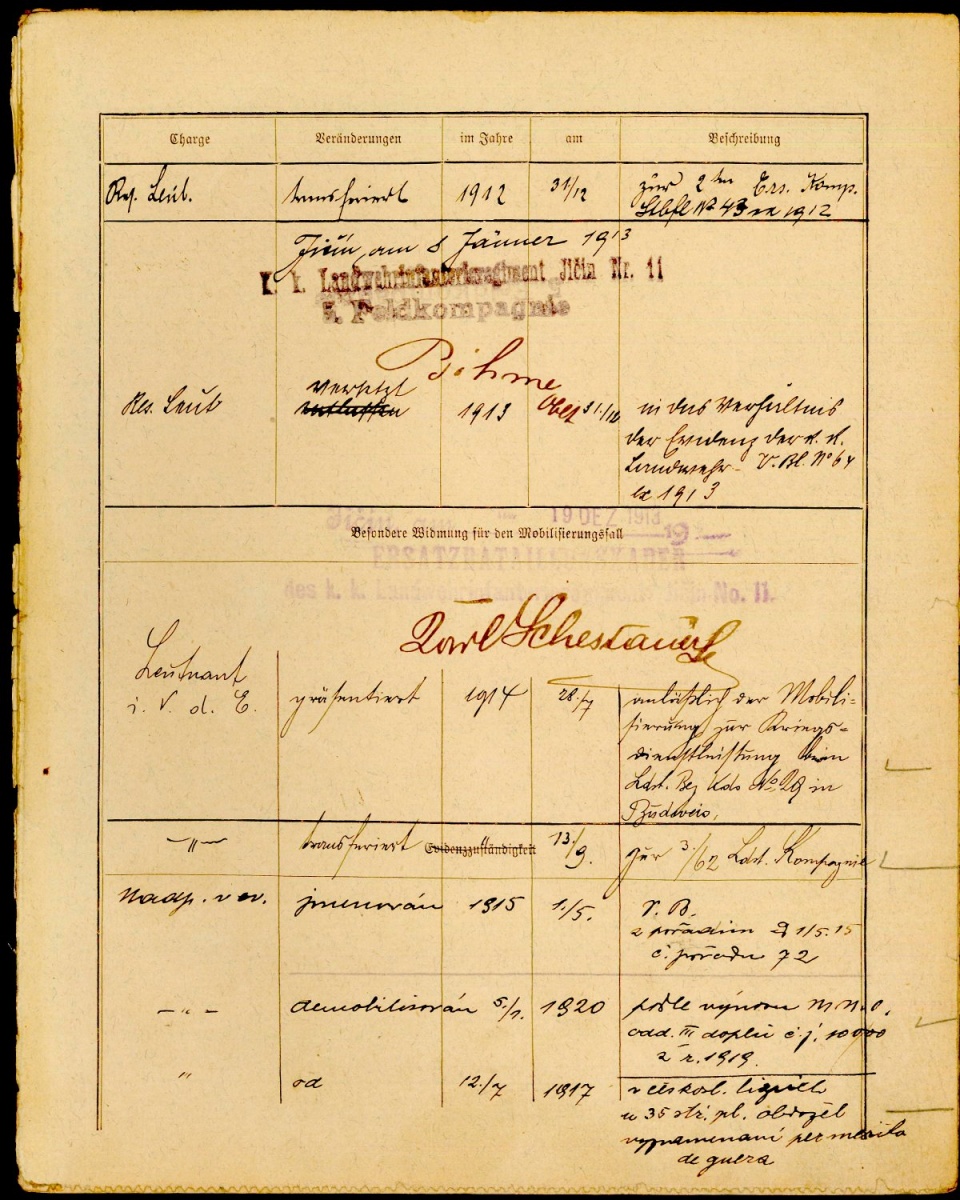 Charge Veränderungen im Jahre am Beschreibung
Res. Leut. transferiert 1912 31/12 zur 2ten Ers. Komp.
Stbfl No 43 ex 1912
Jičín, am 8 Jänner 1913
K. k. Landwehrinfanterieregiment Jičin Nr. 11
5. Feldkompagnie
Böhme
Obst
versetzt
Res. Leut entlassen 1913 31./12 in das Verhältnis
der Evidenz der k. k.
Landwehr - V. Bl. No 64
ex 1913
Jičin 19 DEZ. 1913
19
Besondere Widmung für den Mobilisierungsfall
ERSATZBATAILLONSKADER
des k. k. Landwehrinfanterieregiments Jičin No. 11.
Karl
Leutnant
i. V. d. E. präsentiert 1914 28./7 anläßlich der Mobili-
sierung zur Kriegs-
dienstleistung beim
Ldst. Bez Kdo No 29 in
Budweis,
—"— transferiert Evidenzzuständigkeit 13/9. zur 3./62 Ldst. Kompagnie
Nadp. v ev. jmenován 1915 1./5. V. B.
s pořadím 1/5.15
č. pořadu 72
—"— demobilisován 5/1. 1920 podle výnosu M.N.O.
odd. III doplň č.j. 10000
z r. 1919.
" od 12./7 1917 v českosl. legiích
u 35 stř. pl. obdržel
vyznamenaní per merito
de guera